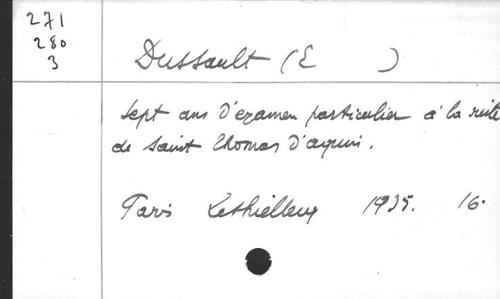 271
280
3
Dussault (E )
Sept ans d'examen particulier à la suite
de Saint Thomas d'aquin.
Paris Lethielleux 1935. 16.